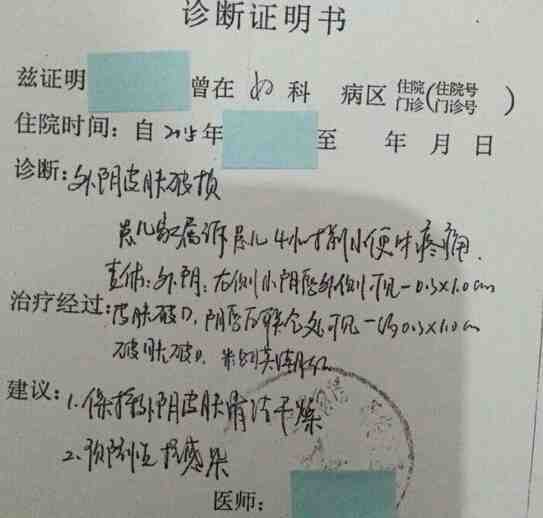 诊断证明书
兹证明 曾在 妇科 病区 住院 门诊 (住院号 门诊号 )
住院时间：自 2015年 至 年 月 日
诊断：外阴皮肤破损
患儿家属诉患儿4小时前小便时疼痛.
查体：外阴：右侧小阴唇外侧可见一0.3×1.0cm
治疗经过：皮肤破口，阴唇后联合处可见一约0.3×1.0cm
皮肤破口
建议：1.保持外阴皮肤清洁干燥
2.预防性抗感染
医师：